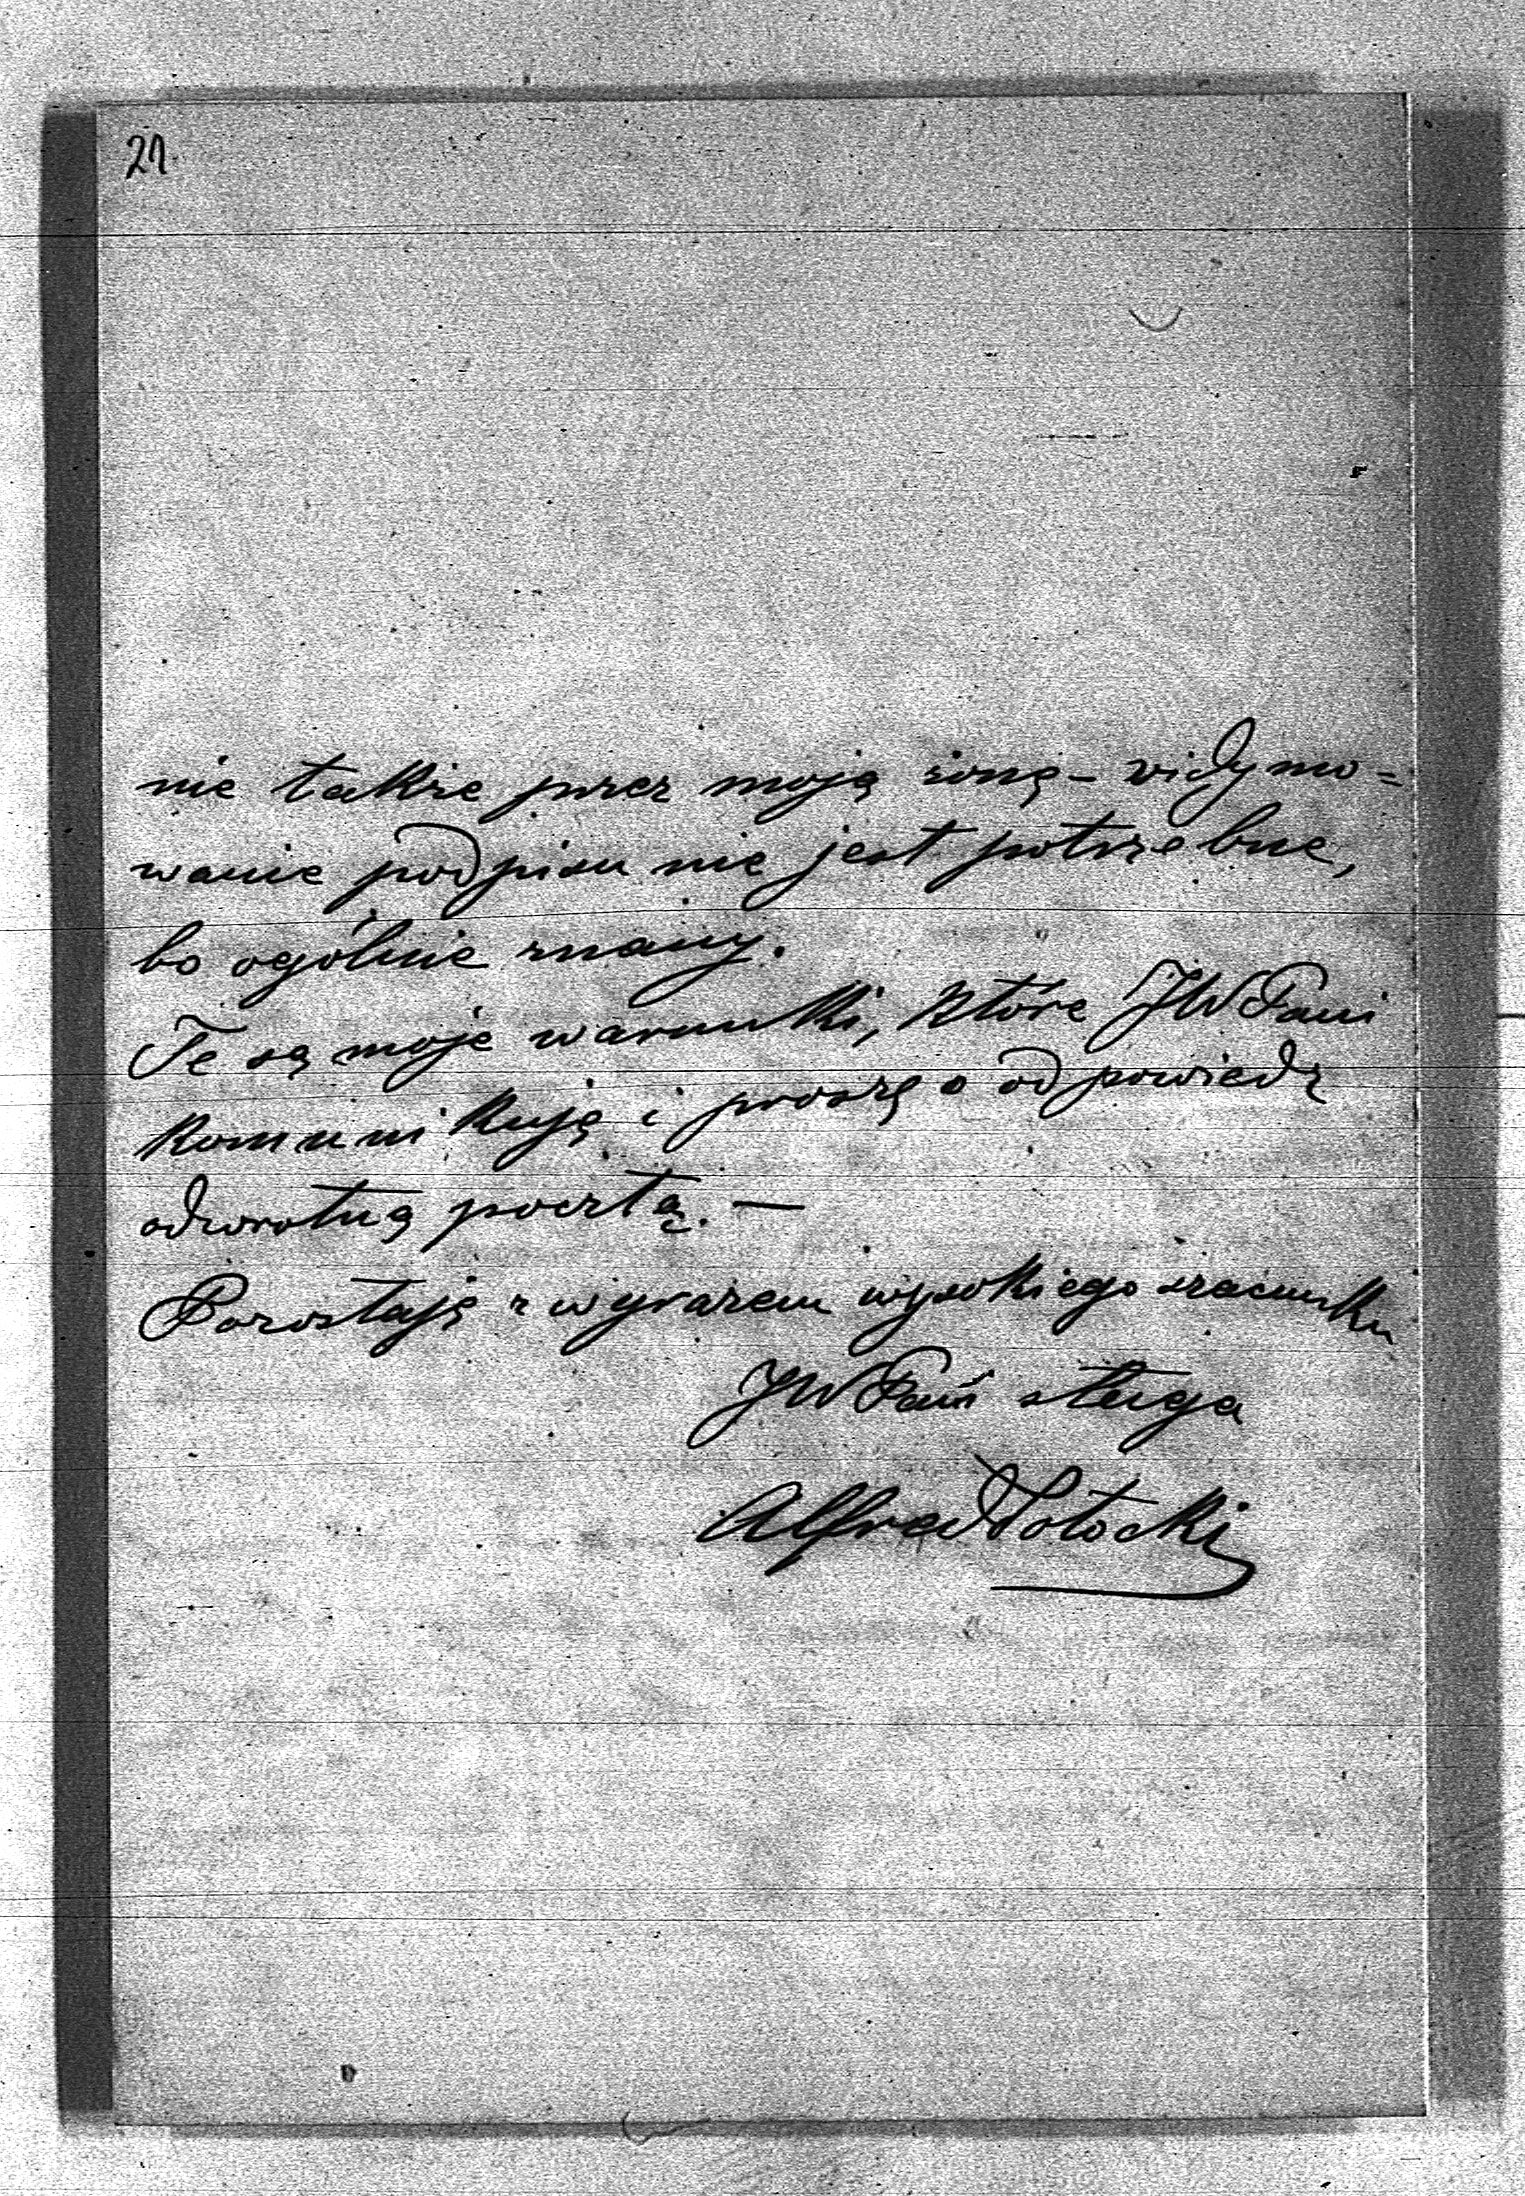 21
nie także przez moją żonę – widymo=
wanie podpisu nie jest potrzebne,
bo ogólnie znany.
Te są moje warunki, które JWPani
komunikuję i proszę o odpowiedź
odwrotną pocztą. —
Pozostaję z wyrazem wysokiego szacunku
JWPani sługa
Alfred Potocki